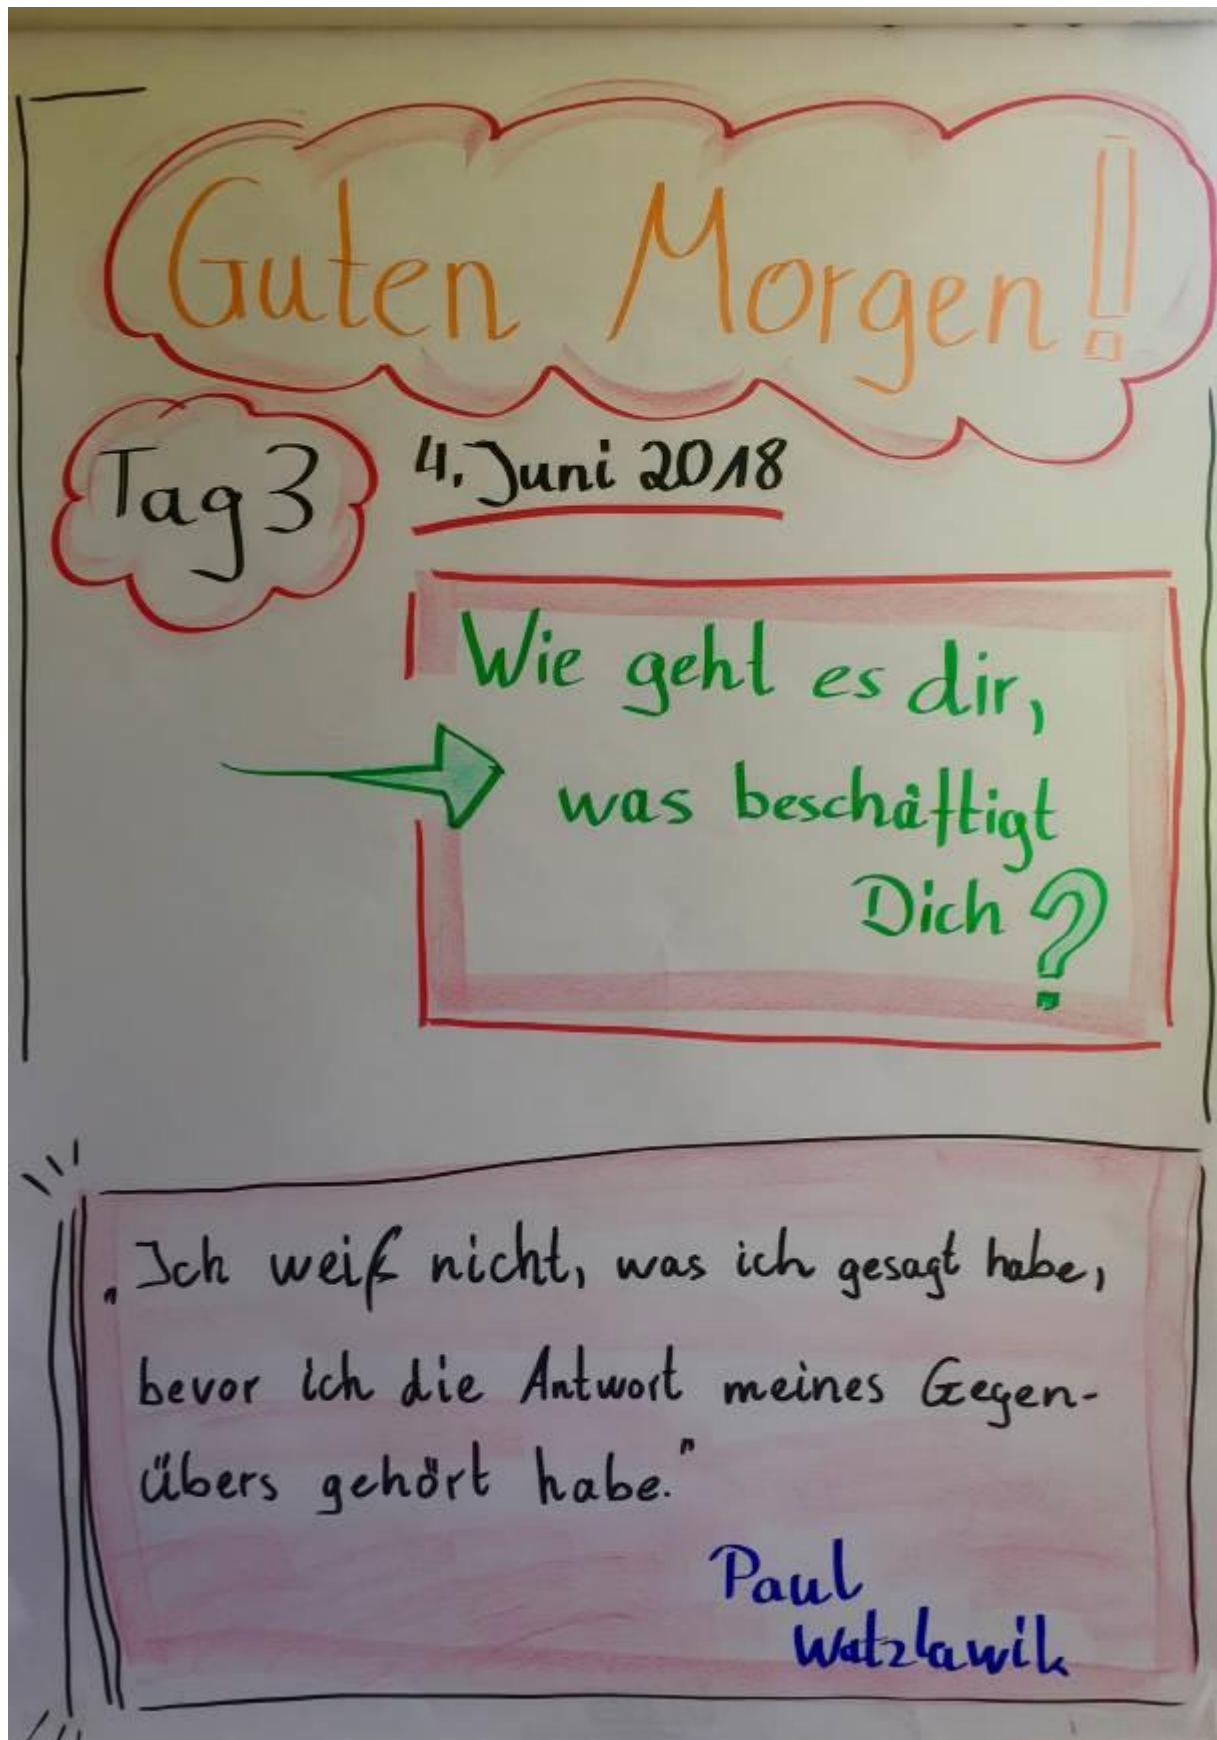 Guten Morgen!
Tag 3
4. Juni 2018
Wie geht es dir,
was beschäftigt
Dich?
„Ich weiß nicht, was ich gesagt habe,
bevor ich die Antwort meines Gegen-
übers gehört habe."
Paul
Watzlawik